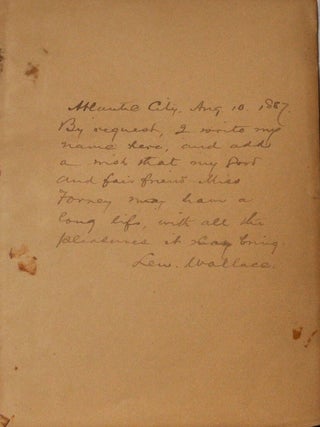 Atlantic City, Aug 10. 1887.
By request, I write my
name here, and add
a wish that my
and fair friend Miss
Forney may have a
long life, with all the
pleasures it may bring
Lew. Wallace.